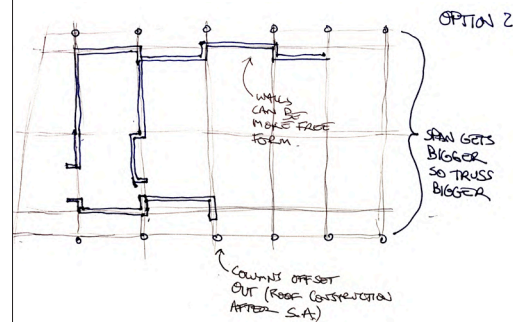 OPTION 2
WALLS
CAN BE
MORE FREE
FORM.
SPAN GETS
BIGGER
SO TRUSS
BIGGER
COLUMNS OFFSET
OUT (ROOF CONSTRUCTION
AFTER S.A.)